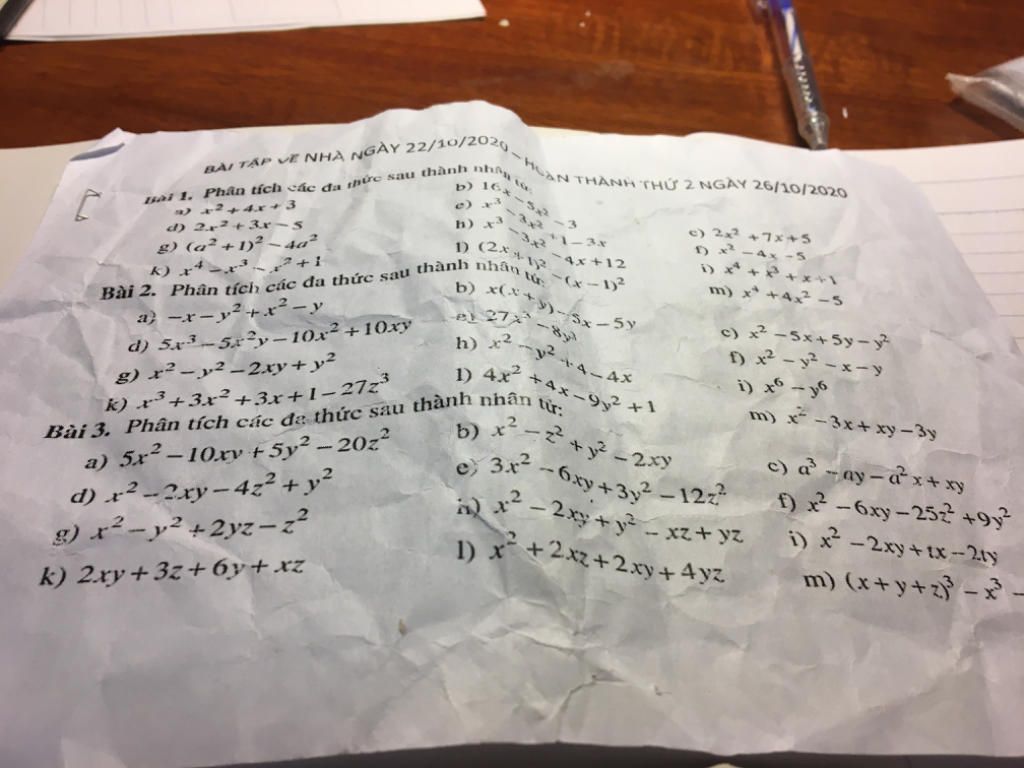 BÀI TẬP VỀ NHÀ NGÀY 22/10/2020 – HOÀN THÀNH THỨ 2 NGÀY 26/10/2020
Bài 1. Phân tích các đa thức sau thành nhân tử:
a) x² + 4x + 3 b) 16x − 5x² − 3 c) 2x² + 7x + 5
d) 2x² + 3x − 5 e) x³ − 3x² + 1 − 3x f) x² − 4x − 5
g) (a² + 1)² − 4a² h) x³ − 3x² − 4x + 12 i) x⁴ + x³ + x + 1
k) x⁴ − x³ − x² + 1 l) (2x + 1)² − (x − 1)² m) x⁴ + 4x² − 5
Bài 2. Phân tích các đa thức sau thành nhân tử:
a) −x − y² + x² − y b) x(x + y) − 5x − 5y c) x² − 5x + 5y − y²
d) 5x³ − 5x²y − 10x² + 10xy e) 27x³ − 8y³ f) x² − y² − x − y
g) x² − y² − 2xy + y² h) x² − y² + 4 − 4x i) x⁶ − y⁶
k) x³ + 3x² + 3x + 1 − 27z³ l) 4x² + 4x − 9y² + 1 m) x² − 3x + xy − 3y
Bài 3. Phân tích các đa thức sau thành nhân tử:
a) 5x² − 10xy + 5y² − 20z² b) x² − z² + y² − 2xy c) a³ − ay − a²x + xy
d) x² − 2xy − 4z² + y² e) 3x² − 6xy + 3y² − 12z² f) x² − 6xy − 25z² + 9y²
g) x² − y² + 2yz − z² h) x² − 2xy + y² − xz + yz i) x² − 2xy + tx − 2ty
k) 2xy + 3z + 6y + xz l) x² + 2xz + 2xy + 4yz m) (x + y + z)³ − x³ −